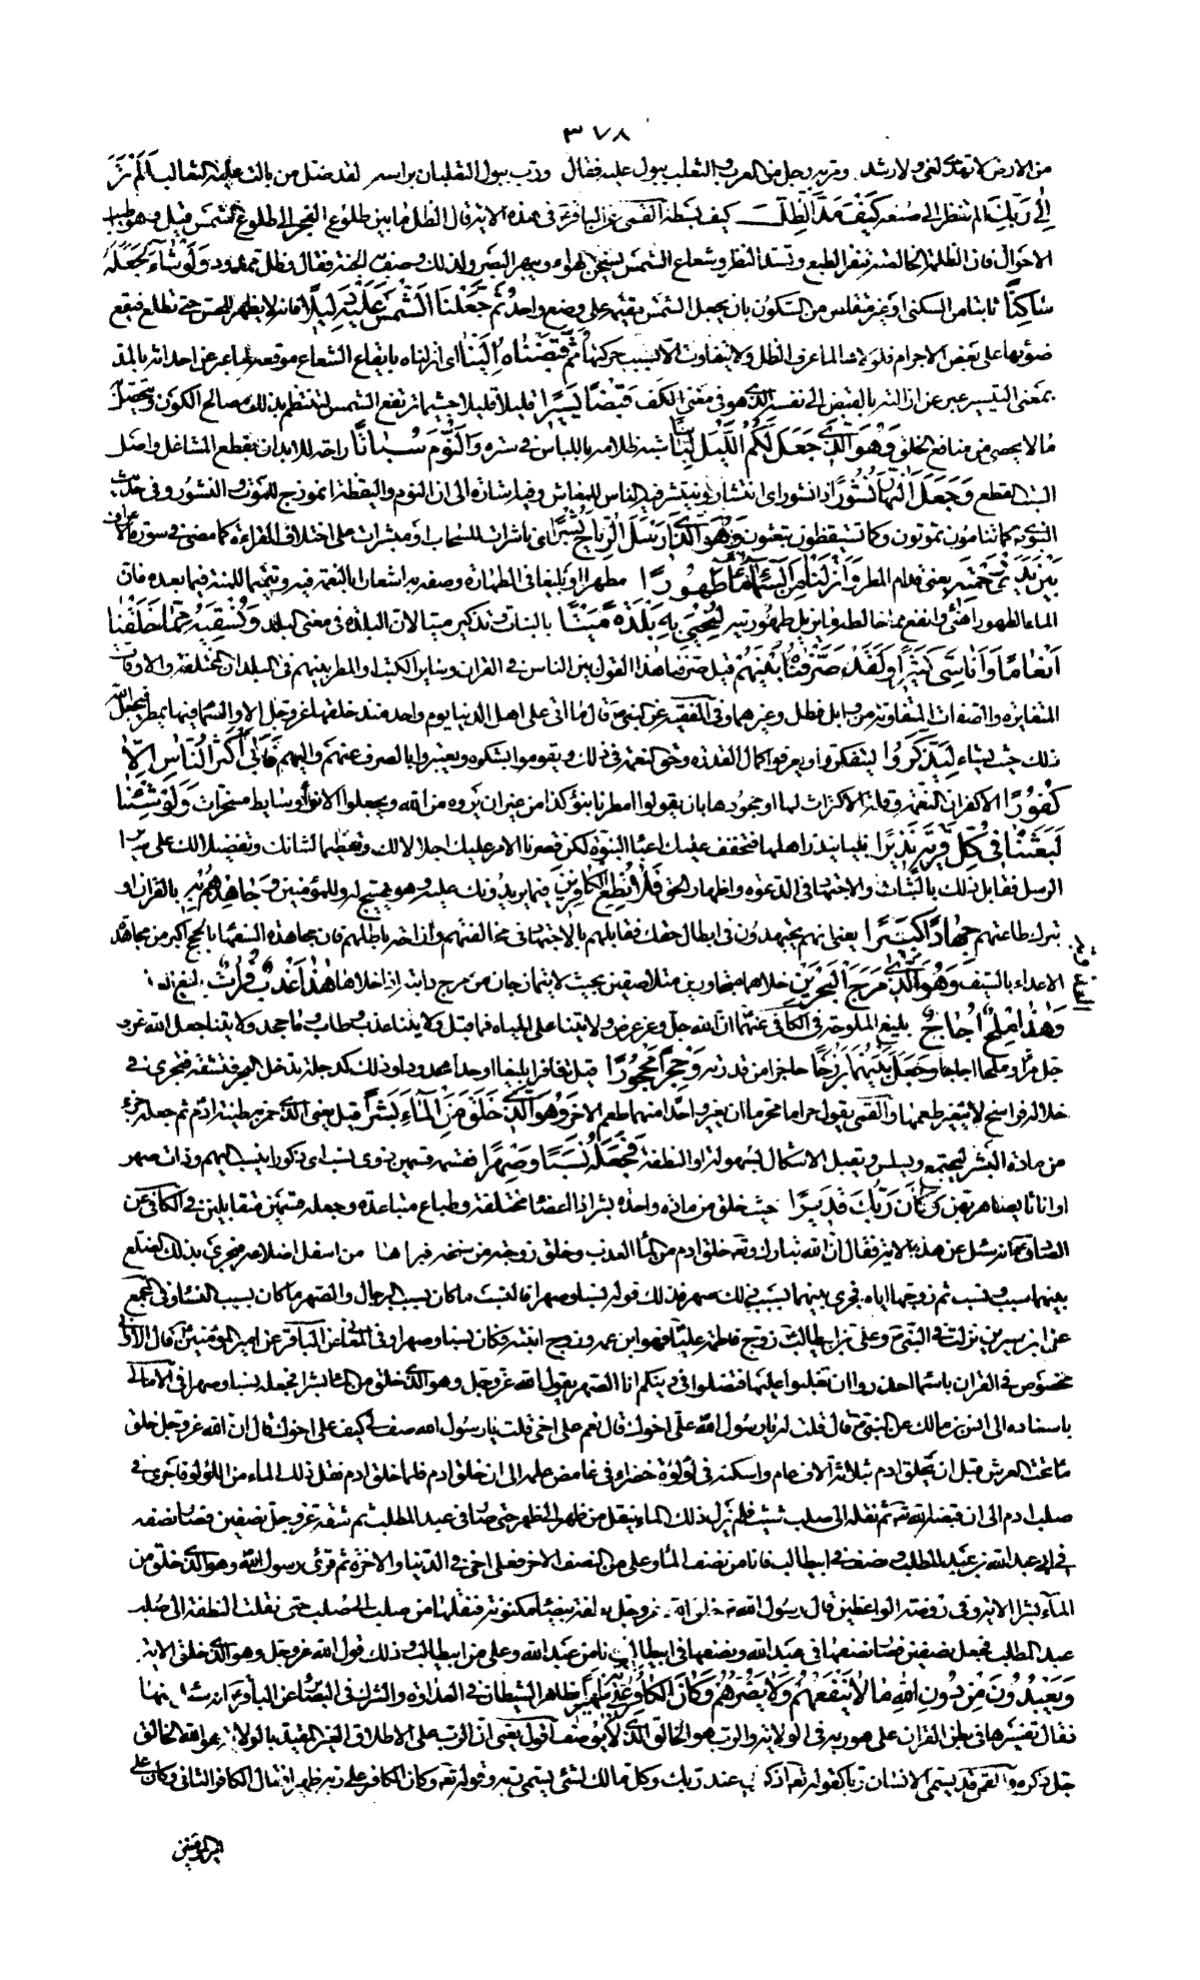 ٣٧٨
من الارض لا تهدى لغى ولا رشد ومر به رجل من العرب والثعلب يبول عليه فقال ورب يبول الثعلبان براسه لقد ضل من بالت عليه الثعالب اَلَمْ تَرَ
اِلٰى رَبِّكَ الم تنظر الى صنعه كَيْفَ مَدَّ الظِّلَّ كيف بسطه القمى عن الباقر ع فى هذه الاية قال الظل ما بين طلوع الفجر الى طلوع الشمس قيل وهو اطيب
الاحوال فان الظلمة الخالصة تنفر الطبع وتسد النظر وشعاع الشمس يسخن الهواء ويبهر البصر ولذلك وصف به الجنة فقال وظل ممدود وَلَوْ شَاءَ لَجَعَلَهُ
سَاكِنًا ثابتا من السكنى او غير متقلص من السكون بان يجعل الشمس مقيمة على وضع واحد ثُمَّ جَعَلْنَا الشَّمْسَ عَلَيْهِ دَلِيلًا فانه لا يظهر للحس حتى تطلع فيقع
ضوئها على بعض الاجرام فلولاها لما عرف الظل ولا يتفاوت الا بسبب حركتها ثُمَّ قَبَضْنَاهُ اِلَيْنَا اى ازلناه بايقاع الشعاع موقعه لما عبر عن احداثه بالمد
بمعنى التيسير عبر عن ازالته بالقبض الى نفسه الذى هو فى معنى الكف قَبْضًا يَسِيرًا قليلا قليلا حسبما ترتفع الشمس لينتظم بذلك مصالح الكون ويتحصل
ما لا يحصى من منافع الخلق وَهُوَ الَّذِي جَعَلَ لَكُمُ اللَّيْلَ لِبَاسًا شبه ظلامه باللباس فى ستره وَالنَّوْمَ سُبَاتًا راحة للابدان بقطع المشاغل واصل
السبت القطع وَجَعَلَ النَّهَارَ نُشُورًا ذا نشور اى انتشار ينتشر فيه الناس للمعاش وفيه اشارة الى ان النوم واليقظة انموذج للموت والنشور وفى حديث
النبوى كما تنامون تموتون وكما تستيقظون تبعثون وَهُوَ الَّذِي اَرْسَلَ الرِّيَاحَ بُشْرًا اى ناشرات للسحاب او مبشرات على اختلاف القراءة كما مضى فى سورة الاعراف
بَيْنَ يَدَيْ رَحْمَتِهِ يعنى قدام المطر وَاَنْزَلْنَا مِنَ السَّمَاءِ مَاءً طَهُورًا مطهرا او بليغا فى الطهارة وصفه به اشعارا بالنعمة فيه وتتميما للمنة فيما بعده فان
الماء الطهور اهنى وانفع مما خالطه ما يزيل طهوريته لِنُحْيِيَ بِهِ بَلْدَةً مَيْتًا بالنبات وتذكير ميتا لان البلدة فى معنى البلد وَنُسْقِيَهُ مِمَّا خَلَقْنَا
اَنْعَامًا وَاَنَاسِيَّ كَثِيرًا وَلَقَدْ صَرَّفْنَاهُ بَيْنَهُمْ قيل صرفنا هذا القول بين الناس فى القران وساير الكتب او المطر بينهم فى البلدان المختلفة والاوقات
المتغايرة والصفات المتفاوتة من وابل وطل وغيرهما وفى الفقيه عن النبى ص قال ما اتى على اهل الدنيا يوم واحد منذ خلقها الله عز وجل الا والسماء فيها تمطر فيجعل الله
ذلك حيث يشاء لِيَذَّكَّرُوا ليتفكروا ويعرفوا كمال القدرة وحق النعمة فى ذلك ويقوموا بشكره ويعتبروا بالصرف عنهم واليهم فَاَبٰى اَكْثَرُ النَّاسِ اِلَّا
كُفُورًا الا كفران النعمة وقلة الاكتراث لها او جحودها بان يقولوا امطرنا بنوء كذا من غير ان يروه من الله ويجعلوا الانواء وسايط مسخرات وَلَوْ شِئْنَا
لَبَعَثْنَا فِي كُلِّ قَرْيَةٍ نَذِيرًا نبيا ينذر اهلها فتخفف عليك اعباء النبوة لكن قصرنا الامر عليك اجلالا لك وتعظيما لشانك وتفضيلا لك على سائر
الرسل فقابل ذلك بالثبات والاجتهاد فى الدعوة واظهار الحق فَلَا تُطِعِ الْكَافِرِينَ فيما يريدونك عليه وهو تهييج له وللمؤمنين وَجَاهِدْهُمْ بِهِ بالقران او
بترك طاعتهم جِهَادًا كَبِيرًا يعنى انهم يجتهدون فى ابطال حقك فقابلهم بالاجتهاد فى مخالفتهم وازاحة باطلهم فان مجاهدة السفهاء بالحجج اكبر من مجاهدة
الاعداء بالسيف وَهُوَ الَّذِي مَرَجَ الْبَحْرَيْنِ خلاهما متجاورين متلاصقين بحيث لا يتمازجان من مرج دابته اذا خلاها هٰذَا عَذْبٌ فُرَاتٌ
وَهٰذَا مِلْحٌ اُجَاجٌ بليغ الملوحة فى الكافى عنهما ان الله جل وعز عرض ولايتنا على المياه فما قبل ولايتنا عذب وطاب وما جحد ولايتنا جعله الله عز و
جل مرا وملحا اجاجا وَجَعَلَ بَيْنَهُمَا بَرْزَخًا حاجزا من قدرته وَحِجْرًا مَحْجُورًا قيل تنافرا بليغا او حدا محدودا وذلك كدجلة تدخل البحر فتشقه فتجرى فى
خلاله فراسخ لا يتغير طعمها والقمى يقول حراما محرما ان يغير واحد منهما طعم الاخر وَهُوَ الَّذِي خَلَقَ مِنَ الْمَاءِ بَشَرًا قيل يعنى الذى خمر به طينة ادم ثم جعله جزء
من مادة البشر ليجتمع ويسلس ويقبل الاشكال بسهولة او النطفة فَجَعَلَهُ نَسَبًا وَصِهْرًا فقسمه قسمين ذوى نسب اى ذكورا ينسب اليهم وذات صهر
اى اناثا يصاهر بهن وَكَانَ رَبُّكَ قَدِيرًا حيث خلق من مادة واحدة بشرا ذا اعضاء مختلفة وطباع متباعدة وجعله قسمين متقابلين فى الكافى عن
الصادق ع انه سئل عن هذه الاية فقال ان الله تبارك وتعالى خلق ادم من الماء العذب وخلق زوجته من سنخه فبراها من اسفل اضلاعه فجرى بذلك الضلع
بينهما سبب ونسب ثم زوجها اياه فجرى بينهما بسبب ذلك صهر فذلك قوله نسبا وصهرا فالنسب ما كان بسبب الرجال والصهر ما كان بسبب النساء وفى المجمع
عن ابن سيرين نزلت فى النبى ص وعلى بن ابيطالب زوج فاطمة عليا فهو ابن عمه وزوج ابنته وكان نسبا وصهرا وفى المعانى عن الباقر عن امير المؤمنين ع قال الا وانى
مخصوص فى القران باسماء احذروا ان تغلبوا عليها فتضلوا فى دينكم انا الصهر يقول الله عز وجل وهو الذى خلق من الماء بشرا فجعله نسبا وصهرا فى الامالى
باسناده الى انس بن مالك عن النبى ص قال قلت له يا رسول الله على اخوك قال نعم على اخى قلت يا رسول الله صف لى كيف على اخوك قال ان الله عز وجل خلق
ماء تحت العرش قبل ان يخلق ادم بثلاثة الاف عام واسكنه فى لؤلؤة خضراء فى غامض علمه الى ان خلق ادم فلما خلق ادم نقل ذلك الماء من اللؤلؤة فاجراه فى
صلب ادم الى ان قبضه الله ثم نقله الى صلب شيث فلم يزل ذلك الماء ينقل من ظهر الى ظهر حتى صار فى عبد المطلب ثم شقه عز وجل نصفين فصار نصفه
فى ابى عبد الله بن عبد المطلب ونصف فى ابيطالب فانا من نصف الماء وعلى من النصف الاخر فعلى اخى فى الدنيا والاخرة ثم قرئ رسول الله وهو الذى خلق من
الماء بشرا الاية وفى روضة الواعظين قال رسول الله ص خلق الله عز وجل نطفة بيضاء مكنونة فنقلها من صلب الى صلب حتى نقلت النطفة الى صلب
عبد المطلب فجعل نصفين فصار نصفها فى عبد الله ونصفها فى ابيطالب فانا من عبد الله وعلى من ابيطالب وذلك قول الله عز وجل وهو الذى خلق الاية
وَيَعْبُدُونَ مِنْ دُونِ اللّٰهِ مَا لَا يَنْفَعُهُمْ وَلَا يَضُرُّهُمْ وَكَانَ الْكَافِرُ عَلٰى رَبِّهِ ظَهِيرًا يظاهر الشيطان فى العداوة والشرك فى البصائر عن الباقر ع انه سئل عنها
فقال تفسيرها فى بطن القران على هو ربه فى الولاية والرب هو الخالق الذى لا يوصف اقول يعنى ان الرب على الاطلاق الغير المقيد بالولاية هو الله الخالق
جل ذكره والقمى قد يسمى الانسان ربا كقوله تعالى اذكرنى عند ربك وكل مالك لشئ يسمى ربه وقوله تعالى وكان الكافر على ربه ظهيرا فقال الكافر الثانى وكان على